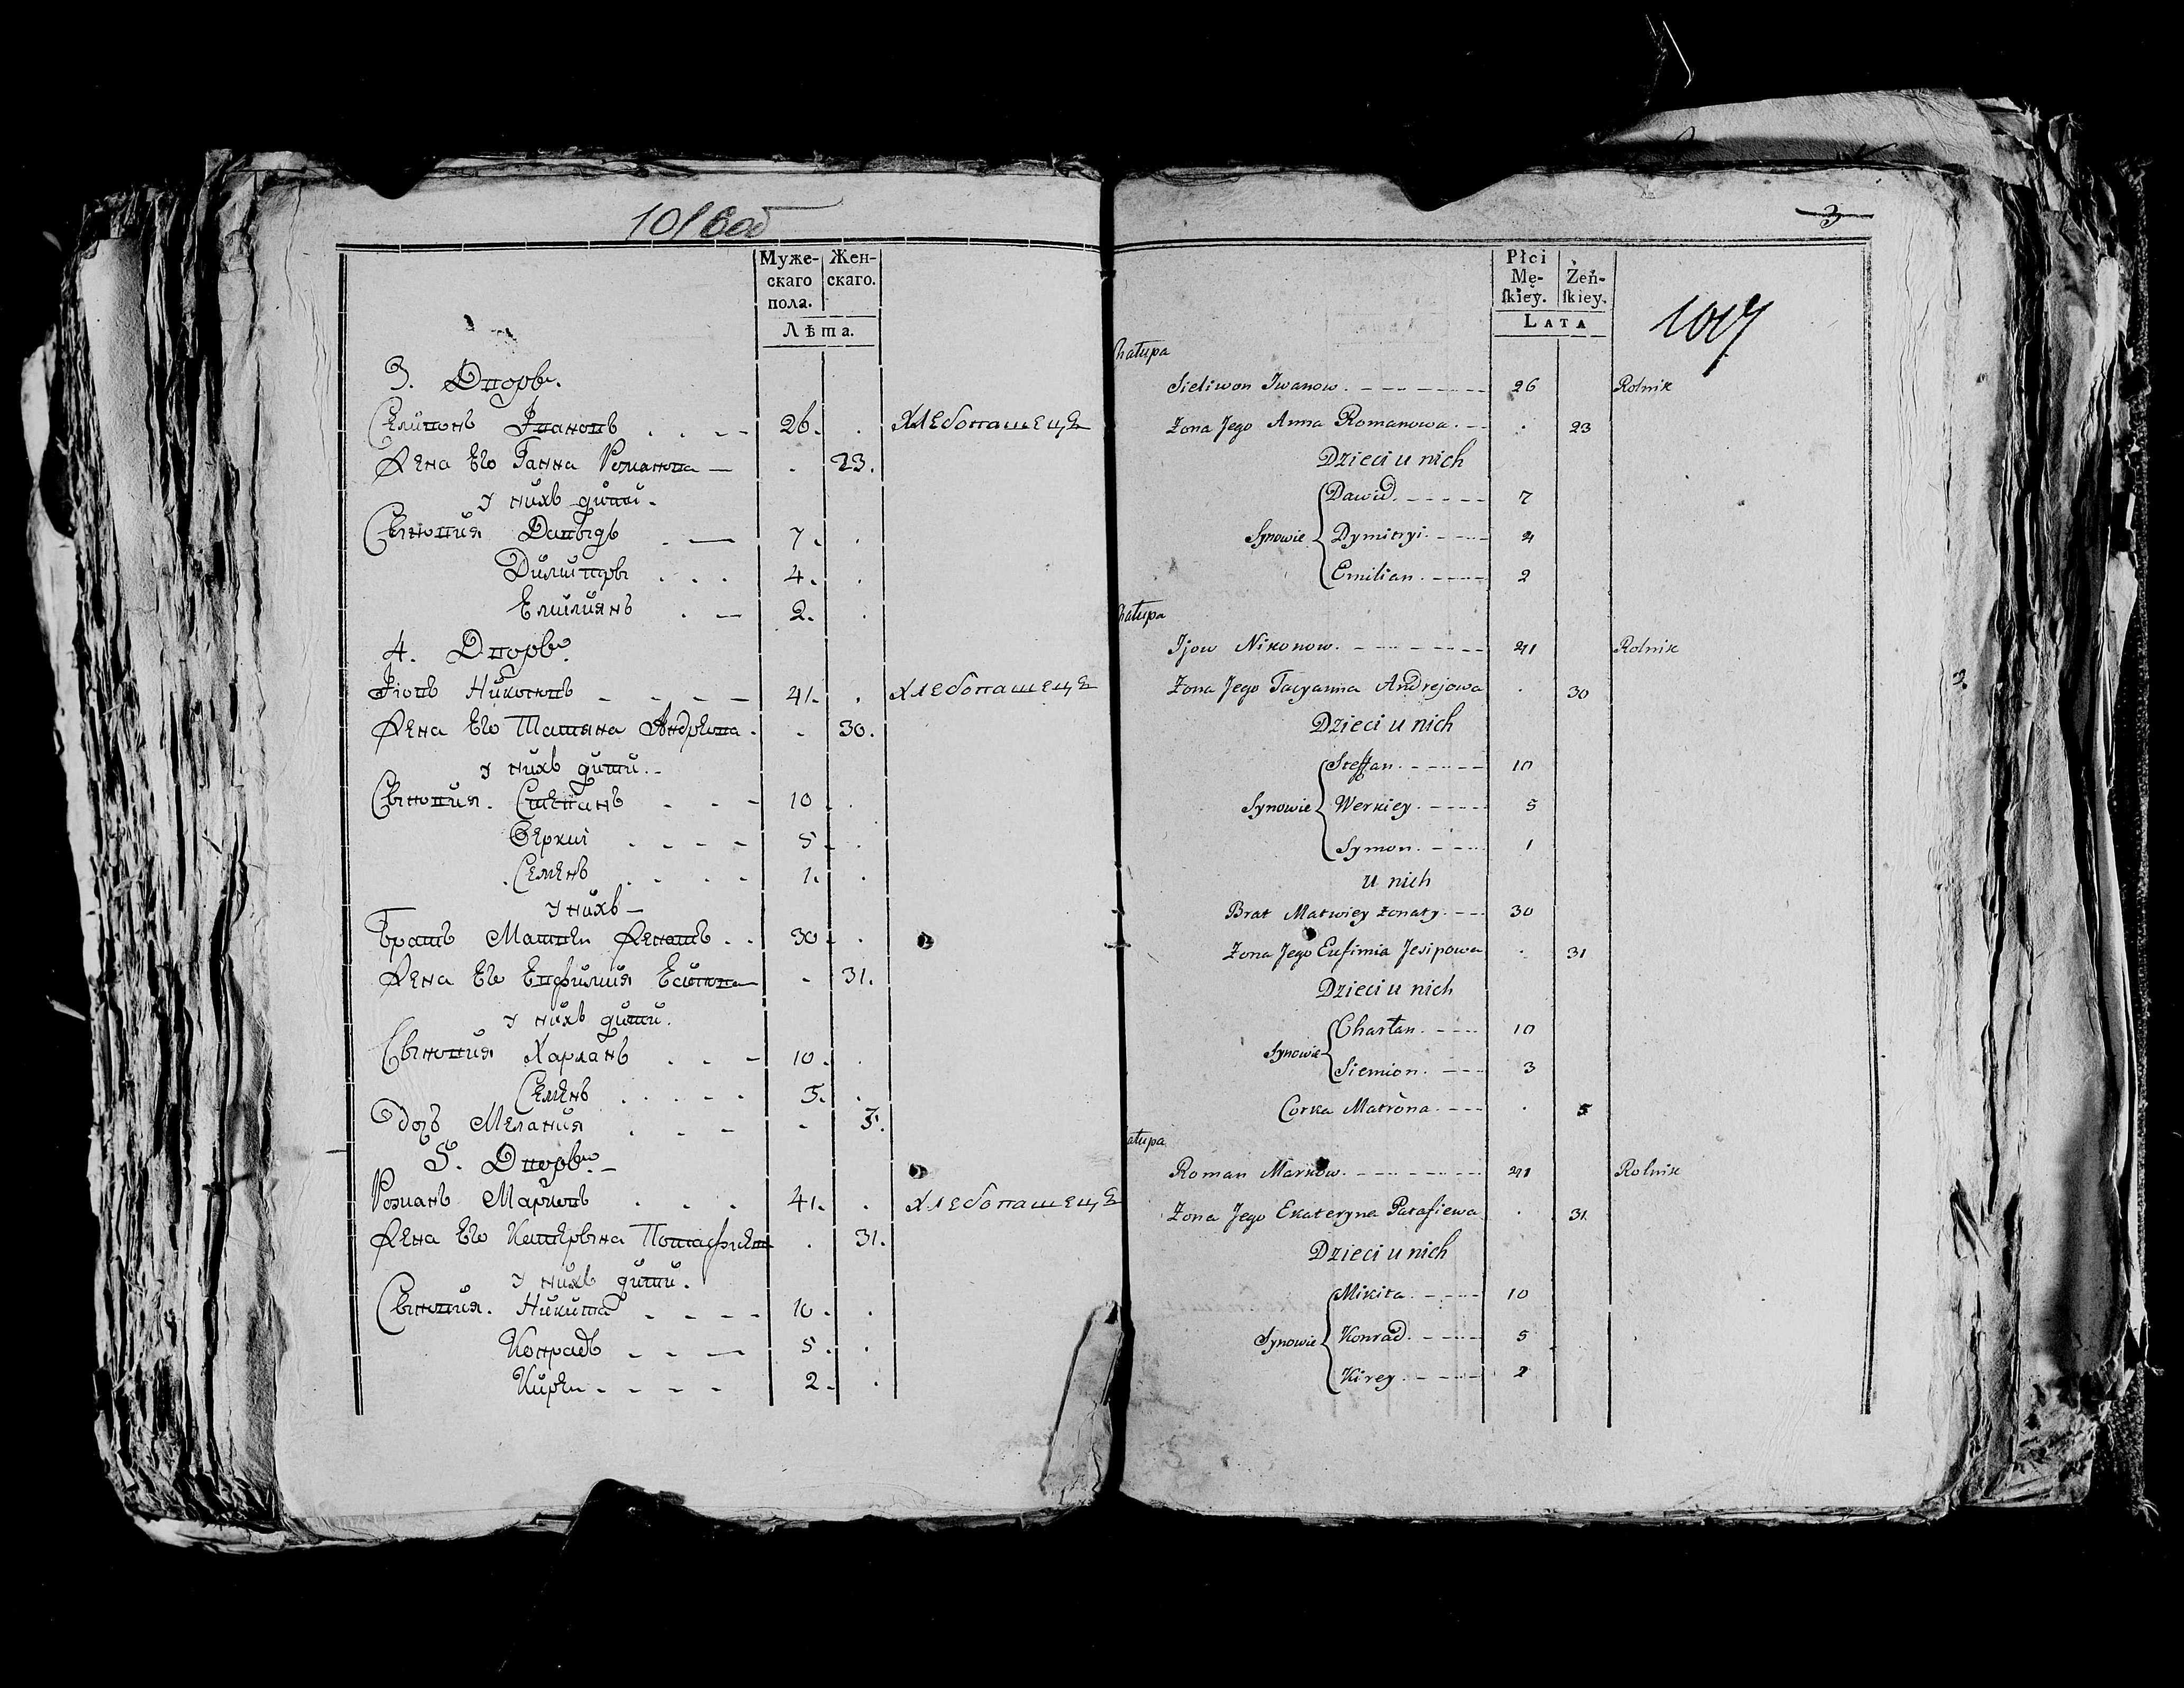 101 об
Муже- Жен-
скаго скаго.
пола.
Лѣта.
3. Дворъ.
Селивонъ Івановъ 26. ХЛЕбопашецъ
Жена Его Ганна Романова 23.
У нихъ дити.
Сыновия Давыдъ 7.
Димитръ 4.
Емилиянъ 2.
4. Дворъ.
Іiовъ Никоновъ 41. ХЛЕбопашецъ
Жена Его Татяна Андрѣева 30.
У нихъ дити.
Сыновия. Степанъ 10
Веркиi 5
Семенъ 1.
У нихъ
Братъ Матвеи Женатъ 30
Жена Его Евфимия Есипова 31.
У нихъ дити.
Сыновия Харланъ 10.
Семенъ 3.
Дочъ Мелания 3.
5. Дворъ.
Романъ Марковъ 41. ХЛЕбопашецъ
Жена Его Катерына 31.
У нихъ дити.
Сыновия. Никита 10
Конрадъ 5
Кирѣи 2
3
Płci
Mę- Żeń-
ſkiey. ſkiey.
LATA
hałupa
Sieliwon Iwanow 26 Rolnik
Żona Jego Anna Romanowa 23
Dzieci u nich
Dawid 7
Synowie Dymitryi 4
Emilian 2
hałupa
Ijow Nikonow 41 Rolnik
Żona Jego Tacyanna Andrejowa 30
Dzieci u nich
Steffan 10
Synowie Werkiey 5
Symon 1
u nich
Brat Matwiey żonaty 30
Żona Jego Eufimia Jesipowa 31
Dzieci u nich
Charłan 10
Synowie
Siemion 3
Corka Matróna 5
ałupa
Roman Markow 41 Rolnik
Żona Jego Ekateryna Parafiewa 31
Dzieci u nich
Mikita 10
Synowie Konrad 5
Kirey 2